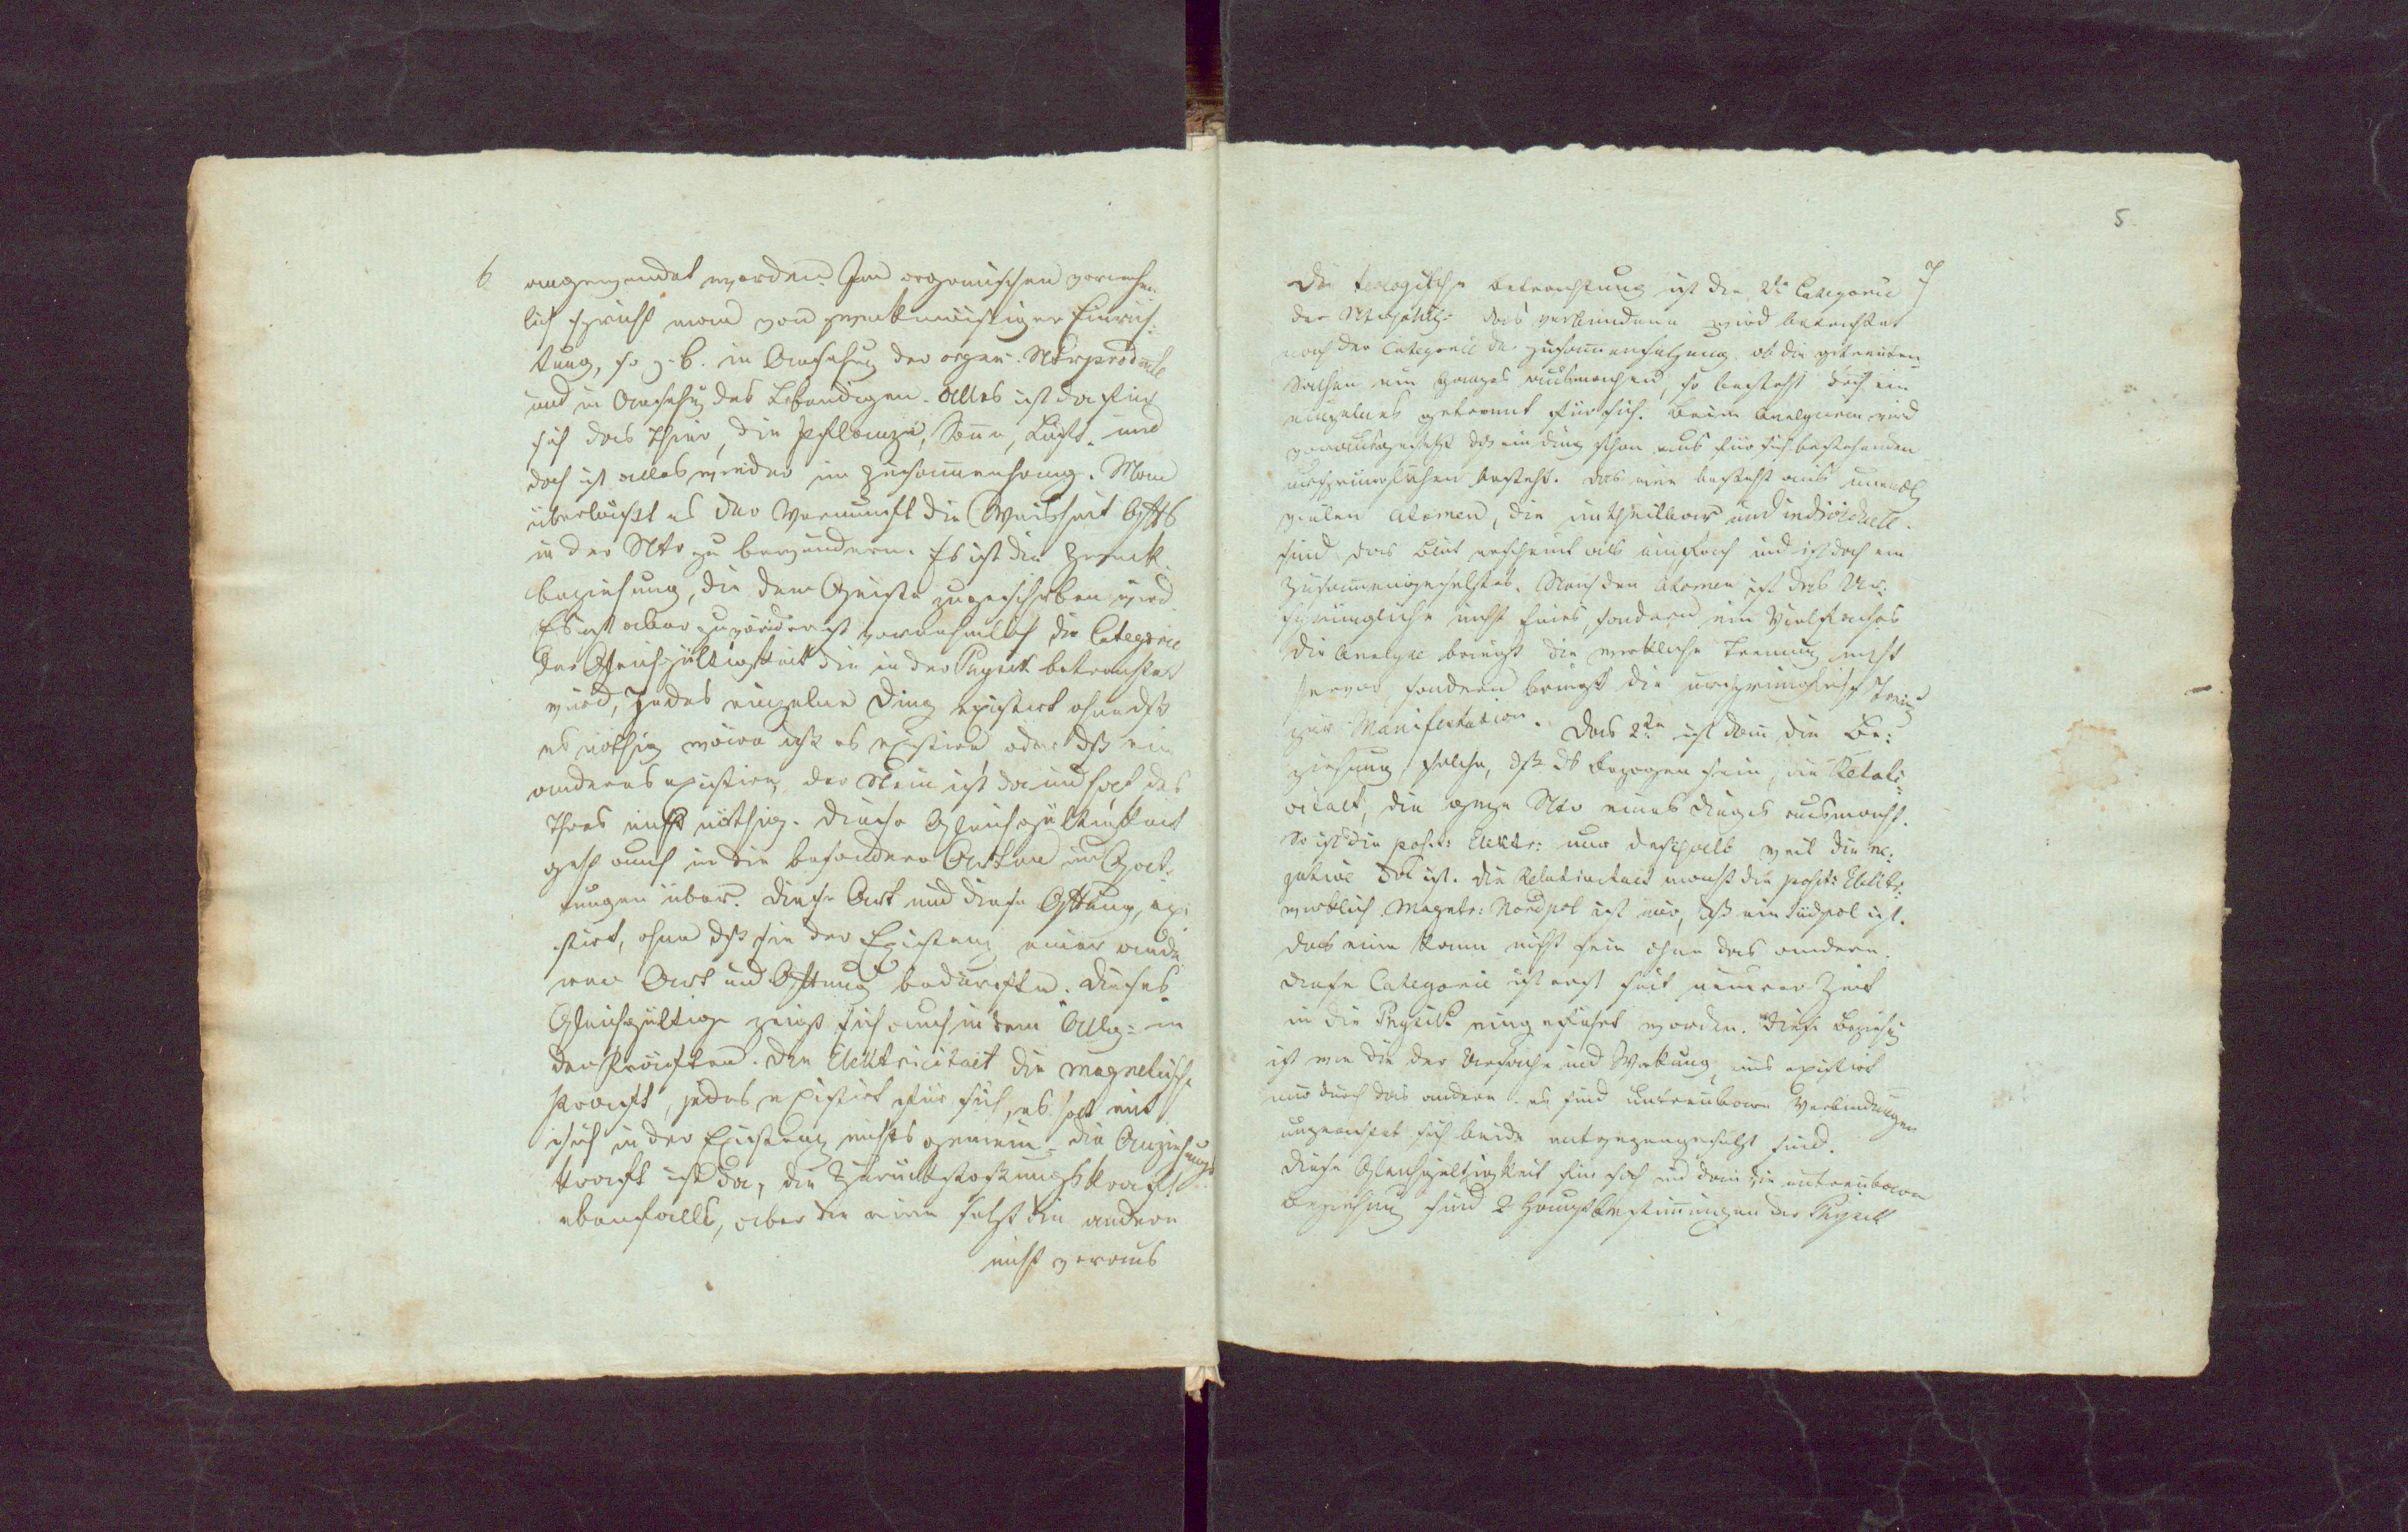 6
angewendet werden. Im organischen vornehm-
lich spricht man von zweckmäßiger Einrich-
tung, so z. B. in Ansehung der organ. Ntrproducte
und in Ansehung des Lebendigen. Alles ist da für
sich das Thier, die Pflanze, Sonne, Luft und
doch ist alles wieder im Zusammenhang. Man
überläßt es der Vernunft die Weisheit Gotts
in der Ntr zu bewundern. Es ist die Zweck-
beziehung, die dem Geiste zugeschrieben wird.
Es ist aber zuvörderst vornehmlich die Categorie
der Gleichgültigkeit die in der Physik betrachtet
wird, Jedes einzelne Ding existirt ohne dß
es nöthig wäre dß es existire, oder dß ein
anderes existire, der Stein ist da und hat das
Thier nicht nöthig. Diese Gleichgültigkeit
geht auch in die besondern Arten und Gat-
tungen über. Diese Art und diese Gttung, exi-
stirt, ohne dß sie der Existenz einer ande-
ren Art und Gttung bedürfte. Dieses
Gleichgültige zeigt sich auch in dem Allg: in
den Kräften. Die Elektricitaet die magnetische
Kraft, jedes existirt für sich, es hat mit
sich in der Existenz nichts gemein. die Anziehungs-
kraft ist da, die Zurückstoßungskraft
ebenfalls, aber die eine setzt die andere
nicht voraus
5
7
Die  Betrachtung ist die 2te Categorie
der  das verbundene wird betrachtet
nach der Categorie der Zusammensetzung. ob die getrennten
Sachen ein Ganzes ausmachen, so besteht doch ein
einzelnes getrennt für sich. Beim Analysiren wird
vorausgesetzt dß ein Ding schon aus für sich bestehenden
ursprünglichen besteht. das eine besteht aus unendl
vielen Atomen, die untheilbar und individuell
sind das Blut erscheint als einfach und ist doch ein
Zusammengesetztes. Nach den Atomen ist das Ur-
sprüngliche nicht Eines, sondern ein Vielfaches
die Analyse bringt die wirkliche Trennung nicht
hervor, sondern bringt die ursprüngliche Trenng
zur Manifestation. Das 2te ist dann die Be-
ziehung, solche, dß das Bezogen sein, die Relati-
vitaet, die ganze Ntr eines Dinges ausmacht.
So ist die posit: Elektr: nur deshalb weil die ne-
gative Elt ist. die Relativitaet macht die posit: Elektr:
wirklich. Magnet: Nordpol ist nur, dß ein Südpol ist.
das eine kann nicht sein ohne das andere.
diese Categorie ist erst seit neuerer Zeit
in die Physik eingeführt worden. diese Beziehg
ist wie die der Ursache und Wirkung, eins existirt
nur durch das andere. es sind untrennbare Verbindungen
ungeachtet sich beide entgegengesetzt sind.
diese Gleichgültigkeit für sich und dann die untrennbare
Beziehung sind 2 Hauptbestimmungen der Physik